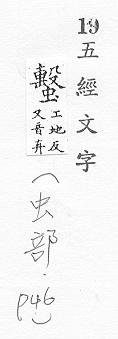 19五經文字
蟿工地反
又音弃
（虫部．P46）